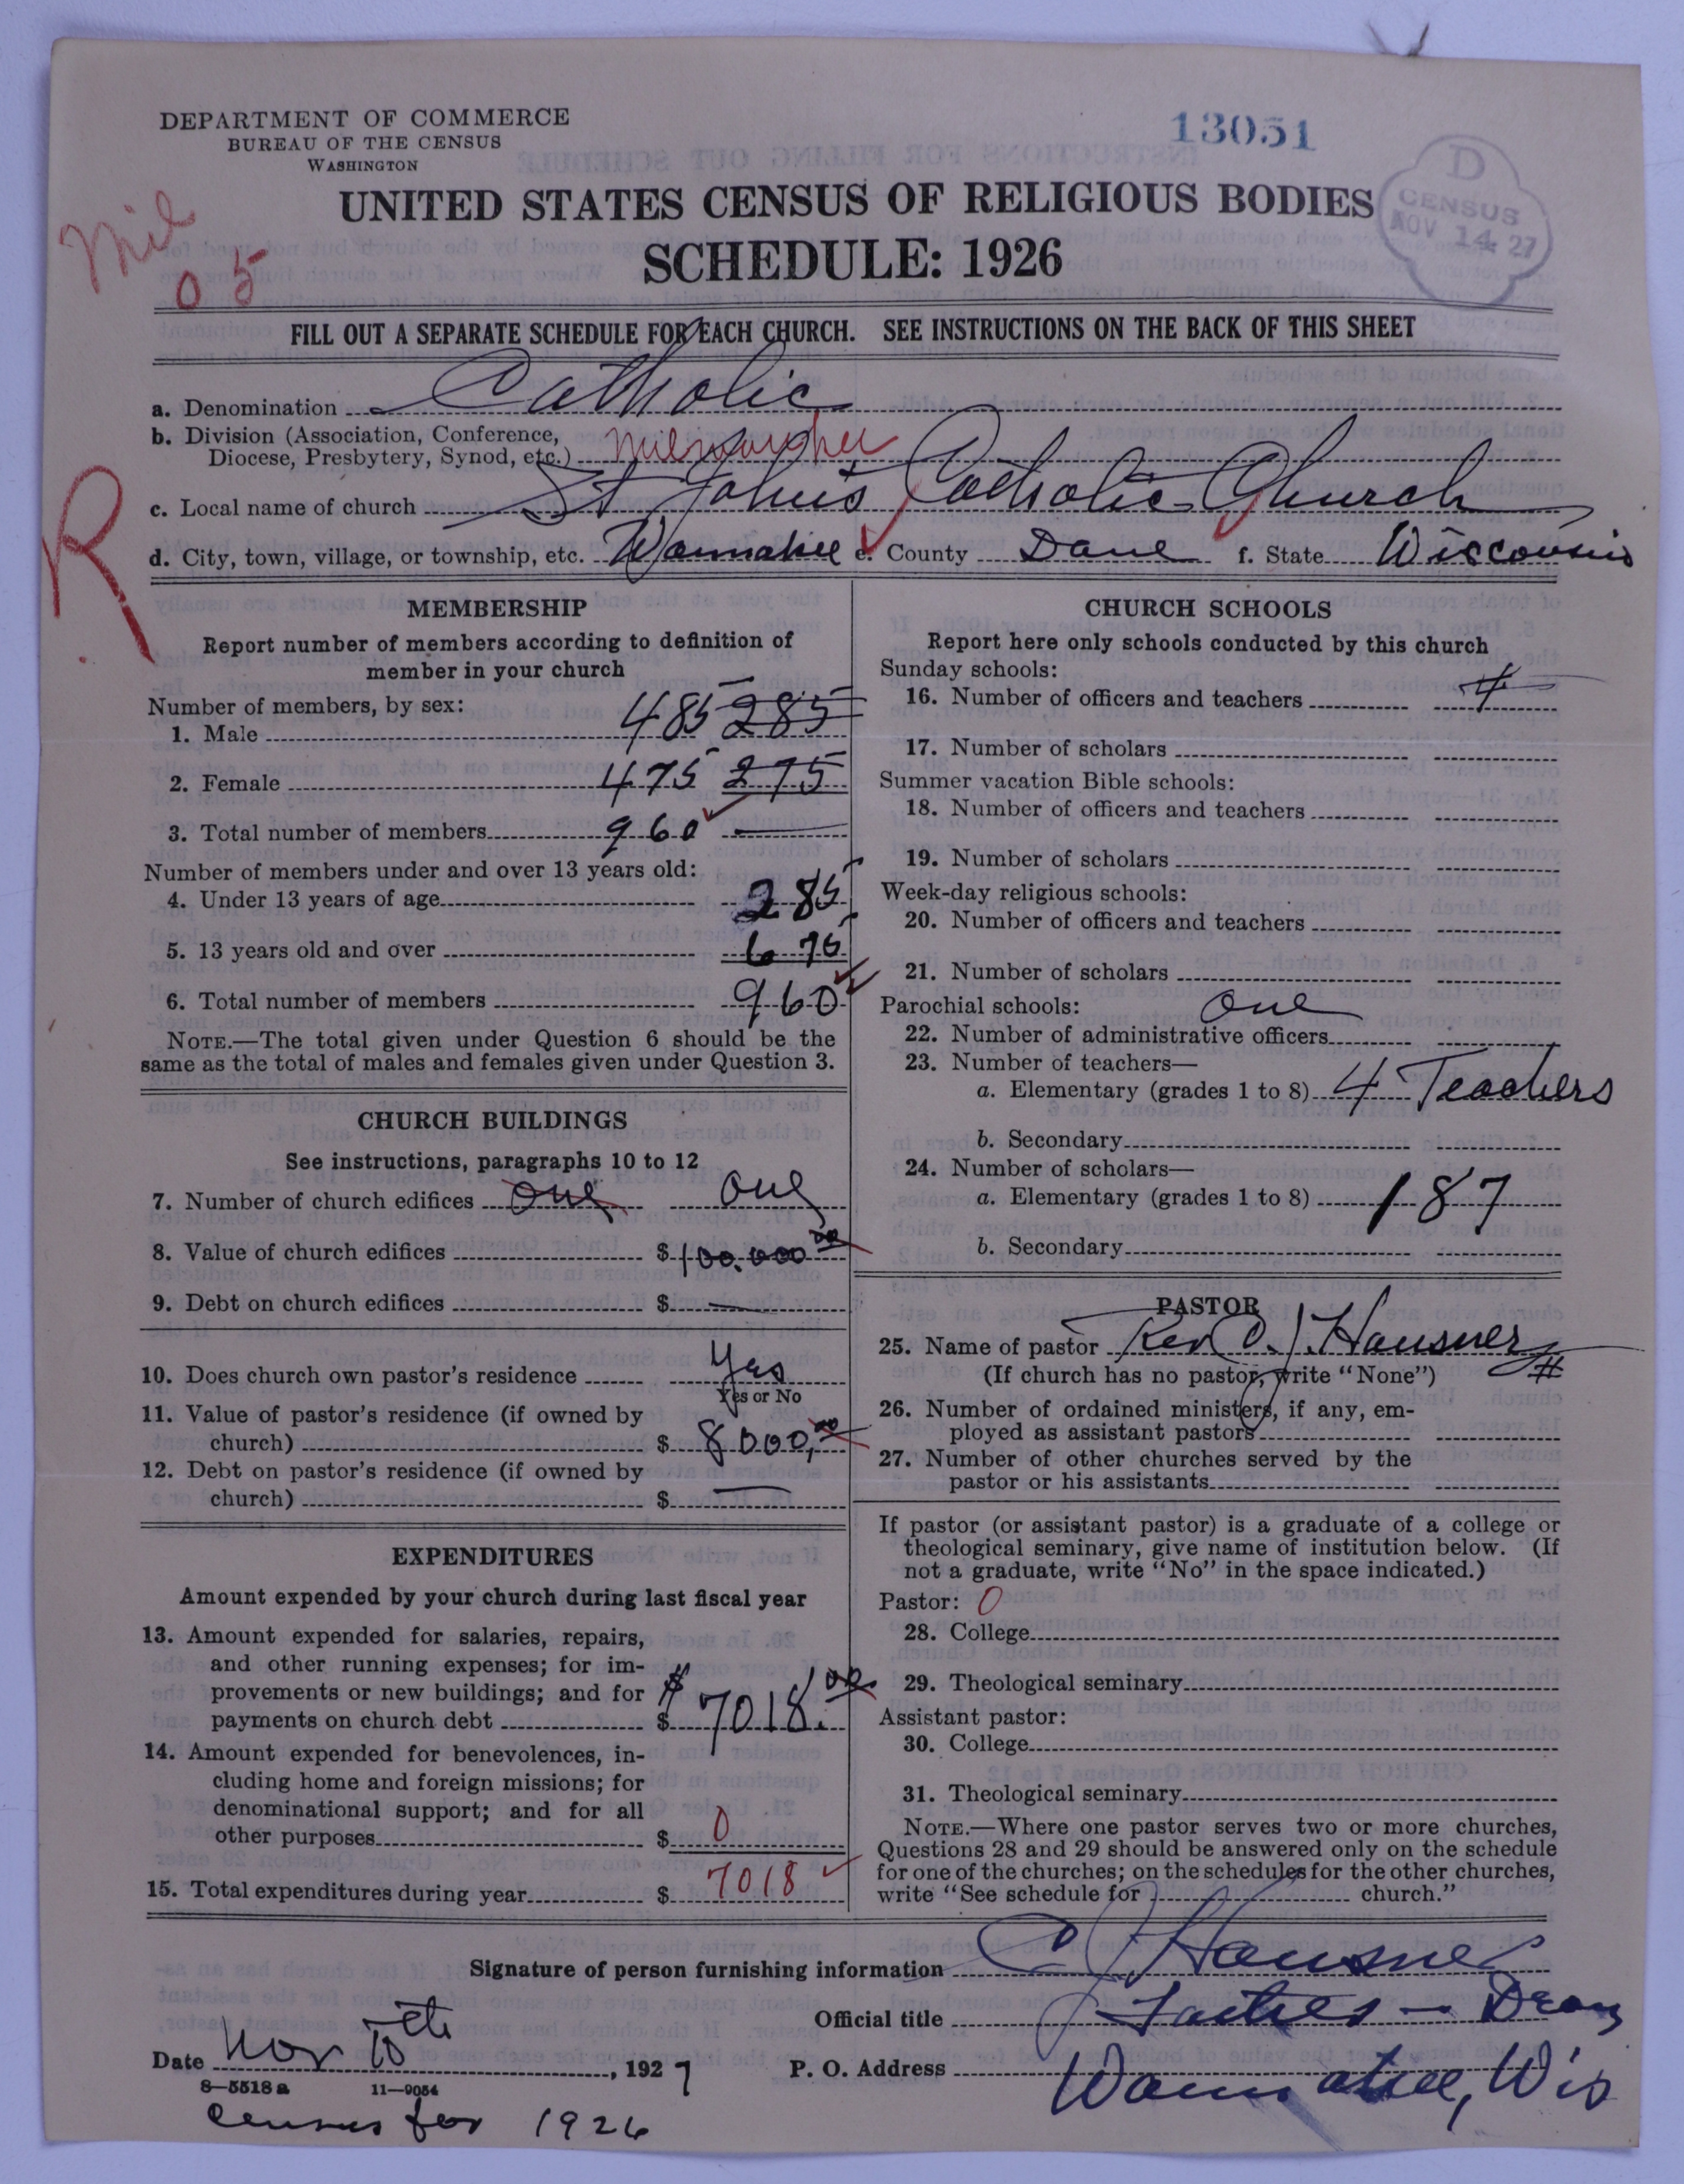 DEPARTMENT OF COMMERCE
BUREAU OF THE CENSUS
WASHINGTON
13051
D
CENSUS
NOV 14 27
Mil
05
UNITED STATES CENSUS OF RELIGIOUS BODIES
SCHEDULE: 1926
FILL OUT A SEPARATE SCHEDULE FOR EACH CHURCH. SEE INSTRUCTIONS ON THE BACK OF THIS SHEET
a. Denomination Catholic
b. Division (Association, Conference,
Diocese, Presbytery, Synod, etc.) Milwaukee
R
c. Local name of church St John's Catholic Church
d. City, town, village, or township, etc. Waunakee e. County Dane f. State Wisconsin
MEMBERSHIP
Report number of members according to definition of
member in your church
Number of members, by sex:
1. Male 485 285
2. Female 475 275
3. Total number of members 960 —
Number of members under and over 13 years old:
4. Under 13 years of age 285
5. 13 years old and over 675
6. Total number of members 960
NOTE.—The total given under Question 6 should be the
same as the total of males and females given under Question 3.
CHURCH BUILDINGS
See instructions, paragraphs 10 to 12
7. Number of church edifices One One
8. Value of church edifices $ 100.000 00
9. Debt on church edifices $ —
10. Does church own pastor's residence Yes
Yes or No
11. Value of pastor's residence (if owned by
church) $ 8000,00
12. Debt on pastor's residence (if owned by
church) $ —
EXPENDITURES
Amount expended by your church during last fiscal year
13. Amount expended for salaries, repairs,
and other running expenses; for im-
provements or new buildings; and for
payments on church debt $ $ 7018.00
14. Amount expended for benevolences, in-
cluding home and foreign missions; for
denominational support; and for all
other purposes $ 0
15. Total expenditures during year $ 7018
CHURCH SCHOOLS
Report here only schools conducted by this church
Sunday schools:
16. Number of officers and teachers 4
17. Number of scholars
Summer vacation Bible schools:
18. Number of officers and teachers
19. Number of scholars
Week-day religious schools:
20. Number of officers and teachers
21. Number of scholars
Parochial schools: One
22. Number of administrative officers
23. Number of teachers—
a. Elementary (grades 1 to 8) 4 Teachers
b. Secondary
24. Number of scholars—
a. Elementary (grades 1 to 8) 187
b. Secondary
PASTOR
25. Name of pastor Rev C. J. Hausner
(If church has no pastor, write "None") #
26. Number of ordained ministers, if any, em-
ployed as assistant pastors
27. Number of other churches served by the
pastor or his assistants
If pastor (or assistant pastor) is a graduate of a college or
theological seminary, give name of institution below. (If
not a graduate, write "No" in the space indicated.)
Pastor: 0
28. College
29. Theological seminary
Assistant pastor:
30. College
31. Theological seminary
NOTE.—Where one pastor serves two or more churches,
Questions 28 and 29 should be answered only on the schedule
for one of the churches; on the schedules for the other churches,
write "See schedule for church."
Signature of person furnishing information C J Hausner
Official title — Dean
Date Nov 10 th, 1927 P. O. Address Waunakee, Wis
8—5518a 11—9054
Census for 1926